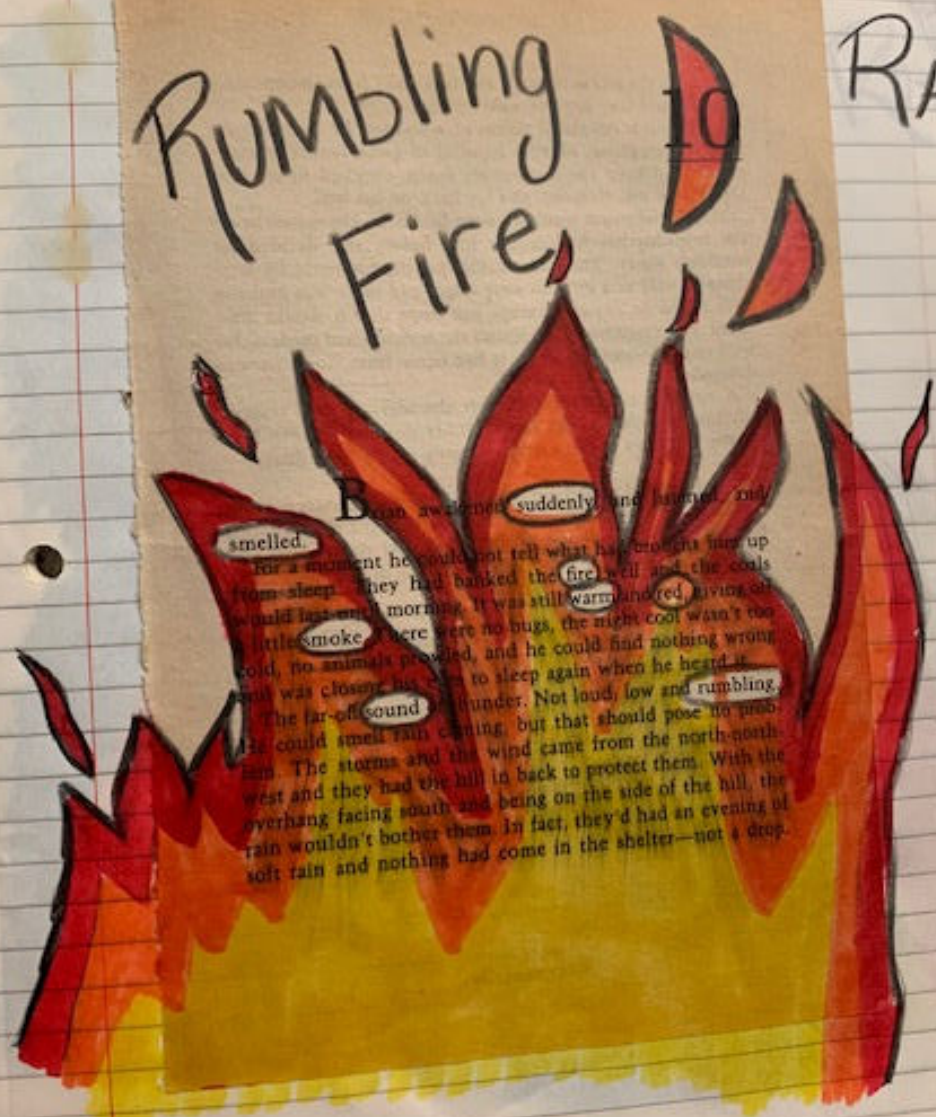 Rumbling
Fire
10
RA
Brian awakened suddenly and listened, and
smelled.
For a moment he could not tell what had brought him up
from sleep. They had banked the fire well and the coals
would last until morning. It was still warm and red, giving off
little smoke. There were no bugs, the night cool wasn't too
cold, no animals prowled, and he could find nothing wrong
and was closing his to sleep again when he heard it.
The far-off sound of thunder. Not loud, low and rumbling.
He could smell rain coming, but that should pose no prob-
lem. The storms and the wind came from the north-north-
west and they had the hill in back to protect them. With the
overhang facing south and being on the side of the hill, the
rain wouldn't bother them. In fact, they'd had an evening of
soft rain and nothing had come in the shelter—not a drop.